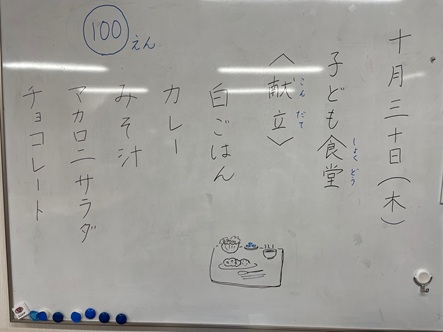 十月三十日(木)
子ども食堂
しょく どう
〈献立〉
こん だて
白ごはん
カレー
みそ汁
マカロニサラダ
チョコレート
100えん